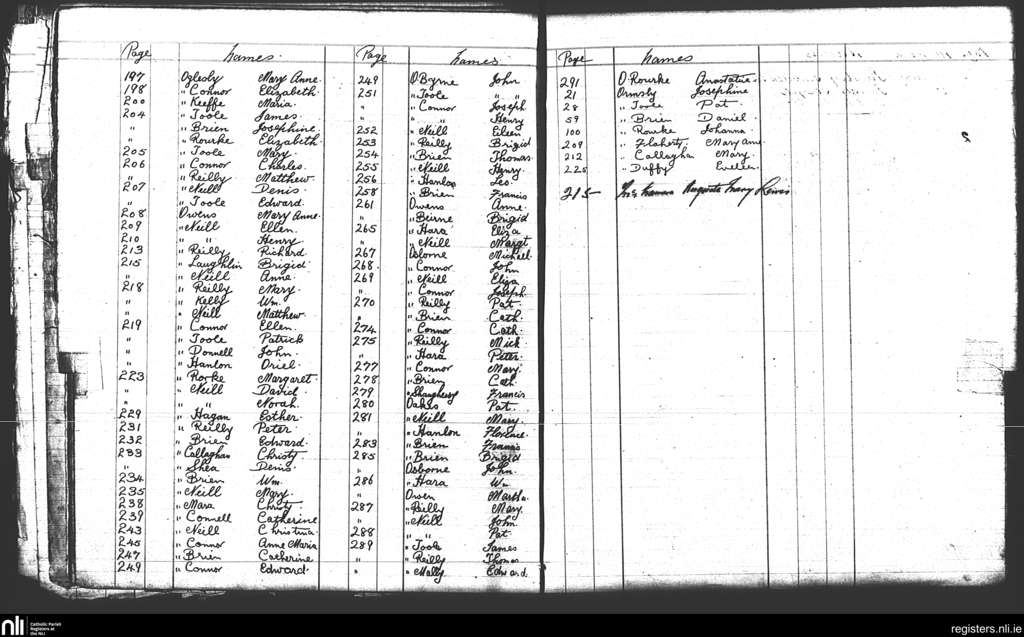 Page Names.
197 Oglesby Mary Anne.
198 " Connor Elizabeth.
200 " Keeffe Maria.
204 " Toole James
" " Brien Josephine.
" " Rourke Elizabeth.
205 " Toole Mary.
206 " Connor Charles.
" " Reilly Matthew.
207 " Neill Denis.
" Toole Edward.
208 Owens Mary Anne.
209 " Neill Ellen.
210 " " Henry
213 " Reilly Richard
215 " Laughlin Brigid
" " Neill Anne.
218 " Reilly Mary.
" " Kelly Wm.
" " Neill Matthew
219 " Connor Ellen.
" " Toole Patrick
" " Donnell John.
" " Hanlon Oriel.
223 " Rorke Margaret.
" " Neill David.
" " " Norah.
229 " Hagan Esther.
231 " Reilly Peter.
232 " Brien Edward.
233 " Callaghan Christy.
" " Shea Denis.
234 " Brien Wm.
235 " Neill Mary.
238 " Mara Christy
239 " Connell Catherine
243 " Neill Christina.
245 " Connor Anne Maria
247 " Brien Catherine
249 " Connor Edward.
Page Names
249 O'Byrne John
251 " Toole " "
" " Connor Joseph
" " " Henry
252 " Neill Eileen
253 " Reilly Brigid
254 " Brien Thomas
255 " Neill Henry.
256 " Hanlon Leo.
258 " Brien Francis
261 Owens Anne.
" Beirne Brigid
265 " Hara Eliza
" Neill Margt
267 Osborne Michael.
268 " Connor John
269 " Neill Eliza
" Connor Joseph.
270 " Reilly Pat.
" " Brien Cath.
274 " Connor Cath.
275 " Reilly Mick.
" " Hara Peter.
277 " Connor Mary.
278 " Brien Cath.
279 " Shaughnessy Francis
280 Oakes Pat.
281 " Neill Mary.
" " Hanlon Florence.
283 " Brien Francis
285 " Brien Brigid
" Osborne John.
286 " Hara Wm
" Owen Martha.
287 " Reilly Mary.
" Neill John
288 " " Pat.
289 " Toole James
" " Reilly Thomas
" " Mally Edward.
Page Names
291 O'Rourke Anastatia.
21 Ormsby Josephine
28 " Toole Pat.
59 " Brien Daniel.
100 " Rourke Johanna
209 " Flaherty Mary Anne
212 " Callaghan Mary.
225 " Duffy Evelien
215 Augusta Mary
nli
Catholic Parish
Registers at
the NLI
registers.nli.ie